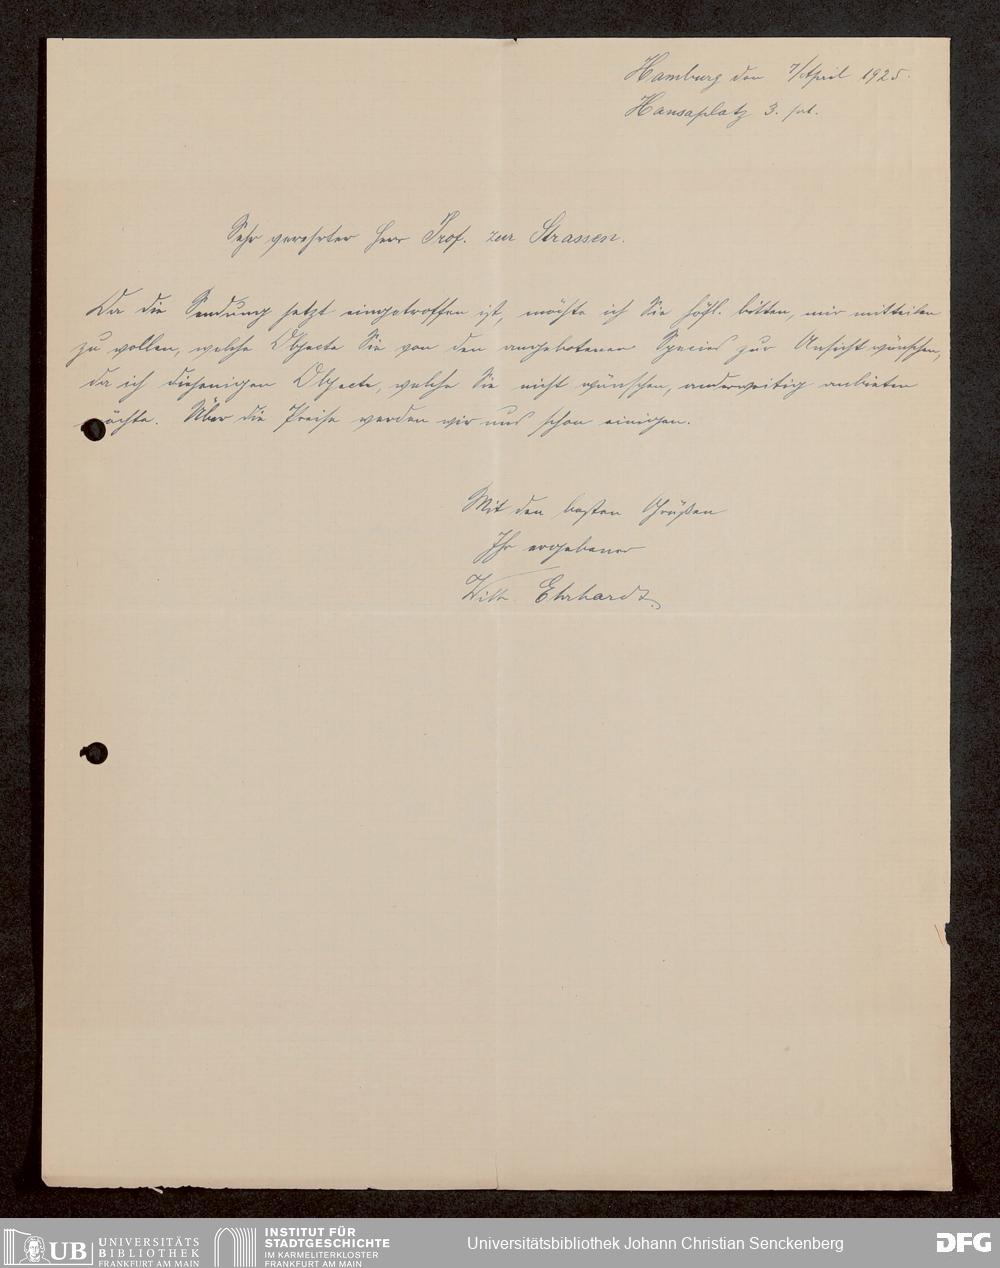 Hamburg den 7/April 1925.
Hansaplatz 3. pt.
Sehr verehrter Herr Prof. zur Strassen.
Da die Sendung jetzt eingetroffen ist, möchte ich Sie höfl. bitten, mir mitteilen
zu wollen, welche Objecte Sie von den angebotenen Species zur Ansicht wünschen,
da ich diejenigen Objecte, welche Sie nicht wünschen, anderweitig anbieten
möchte. Über die Preise werden wir uns schon einigen.
Mit den besten Grüßen
Ihr ergebener
Wilh. Ehrhardt.
UB UNIVERSITÄTS
BIBLIOTHEK
FRANKFURT AM MAIN
INSTITUT FÜR
STADTGESCHICHTE
IM KARMELITERKLOSTER
FRANKFURT AM MAIN
Universitätsbibliothek Johann Christian Senckenberg
DFG